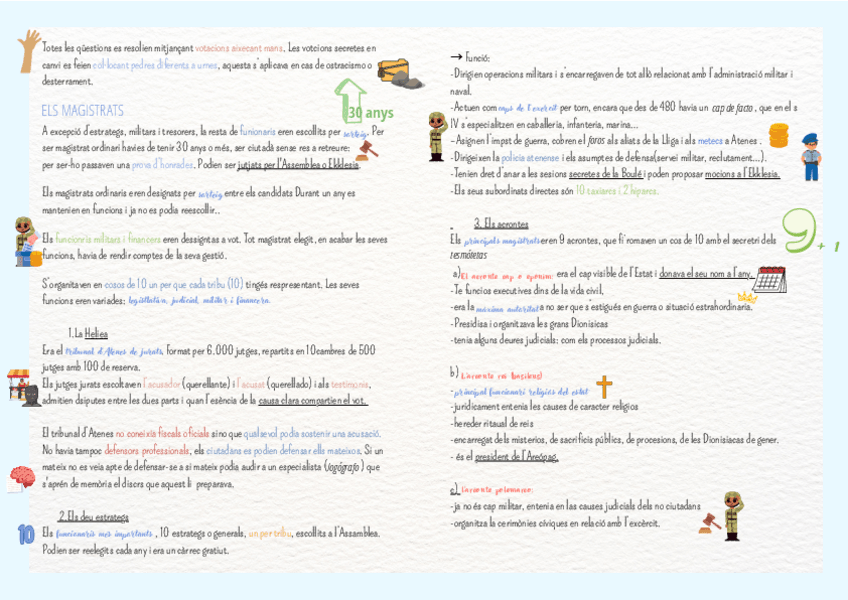 Totes les qüestions es resolien mitjançant votacions aixecant mans. Les votcions secretes en
canvi es feien col·locant pedres diferenta a urnes, aquesta s'aplicava en cas de ostracismo o
desterrament.
ELS MAGISTRATS
30 anys
A excepció d'estrategs, militars i tresorers, la resta de funionaris eren escollits per sorteig. Per
ser magistrat ordinari havies de tenir 30 anys o més, ser ciutadà sense res a retreure:
per ser-ho passaven una prova d'honrades. Podien ser jutjats per l'Assemblea o Ekklesia.
Els magistrats ordinaris eren designats per sorteig entre els candidats Durant un any es
mantenien en funcions i ja no es podia reescollir..
Els funcionris militars i financers eren dessigntas a vot. Tot magistrat elegit, en acabar les seves
funcions, havia de rendir comptes de la seva gestió.
S'organitzava en cosos de 10 un per que cada tribu (10) tingés respresentant. Les seves
funcions eren variades: legislativa, judicial, militar i financera.
1.La Heliea
Era el tribunal d'Atenes de jurats, format per 6.000 jutges, repartits en 10cambres de 500
jutges amb 100 de reserva.
Els jutges jurats escoltaven l'acusador (querellante) i l'acusat (querellado) i als testimonis,
admitien disputes entre les dues parts i quan l'esència de la causa clara compartien el vot.
El tribunal d'Atenes no coneixia fiscals oficials sino que qualsevol podia sostenir una acusació.
No havia tampoc defensors professionals, els ciutadans es podien defensar ells mateixos. Si un
mateix no es veia apte de defensar-se a si mateix podia audir a un especialista (logógrafo) que
s'aprén de memòria el discrs que aquest li preparava.
2.Els deu estrategs
10
Els funcionaris més importants , 10 estrategs o generals, un per tribu, escollits a l'Assamblea.
Podien ser reelegits cada any i era un càrrec gratiut.
→ Funció:
-Dirigien operacions militars i s'encarregaven de tot allò relacionat amb l'administració militar i
naval.
-Actuen com caps de l'exercit per torn, encara que des de 480 havia un cap de facto , que en el s
IV s'especialitzen en caballeria, infanteria, marina...
-Asignen l'impst de guerra, cobren el foros als aliats de la Lliga i als metecs a Atenes .
-Dirigeixen la policia atenense i els asumptes de defensa(servei militar, reclutament...).
-Tenien dret d'anar a les sesions secretes de la Boulé i poden proposar mocions a l'Ekklesia.
-Els seus subordinats directes són 10 taxiarcs i 2 hiparcs.
3. Els acrontes
9 + 1
Els principals magistrats eren 9 acrontes, que fi' romaven un cos de 10 amb el secretri dels
tesmòtetas
a) El aconte cap o epònim: era el cap visible de l'Estat i donava el seu nom a l'any.
-Te funcios executives dins de la vida civil,
-era la màxima autoritat a no ser que s'estigués en guerra o situació estrahordinaria.
-Presidisa i organitzava les grans Dionisicas
-tenia alguns deures judicials: com els processos judicials.
b) L'arconte rei (basileus)
-principal funcionari religios del estat
-juridicament entenia les causes de caracter religios
-hereder ritausl de reis
-encarregat dels misterios, de sacrificis públics, de procesions, de les Dionisiacas de gener.
- és el president de l'Areópag.
c) L'arconte polemarco:
-ja no és cap militar, entenia en las causes judicials dels no ciutadans
-organitza la cerimònies civiques en relació amb l'exèrcit.